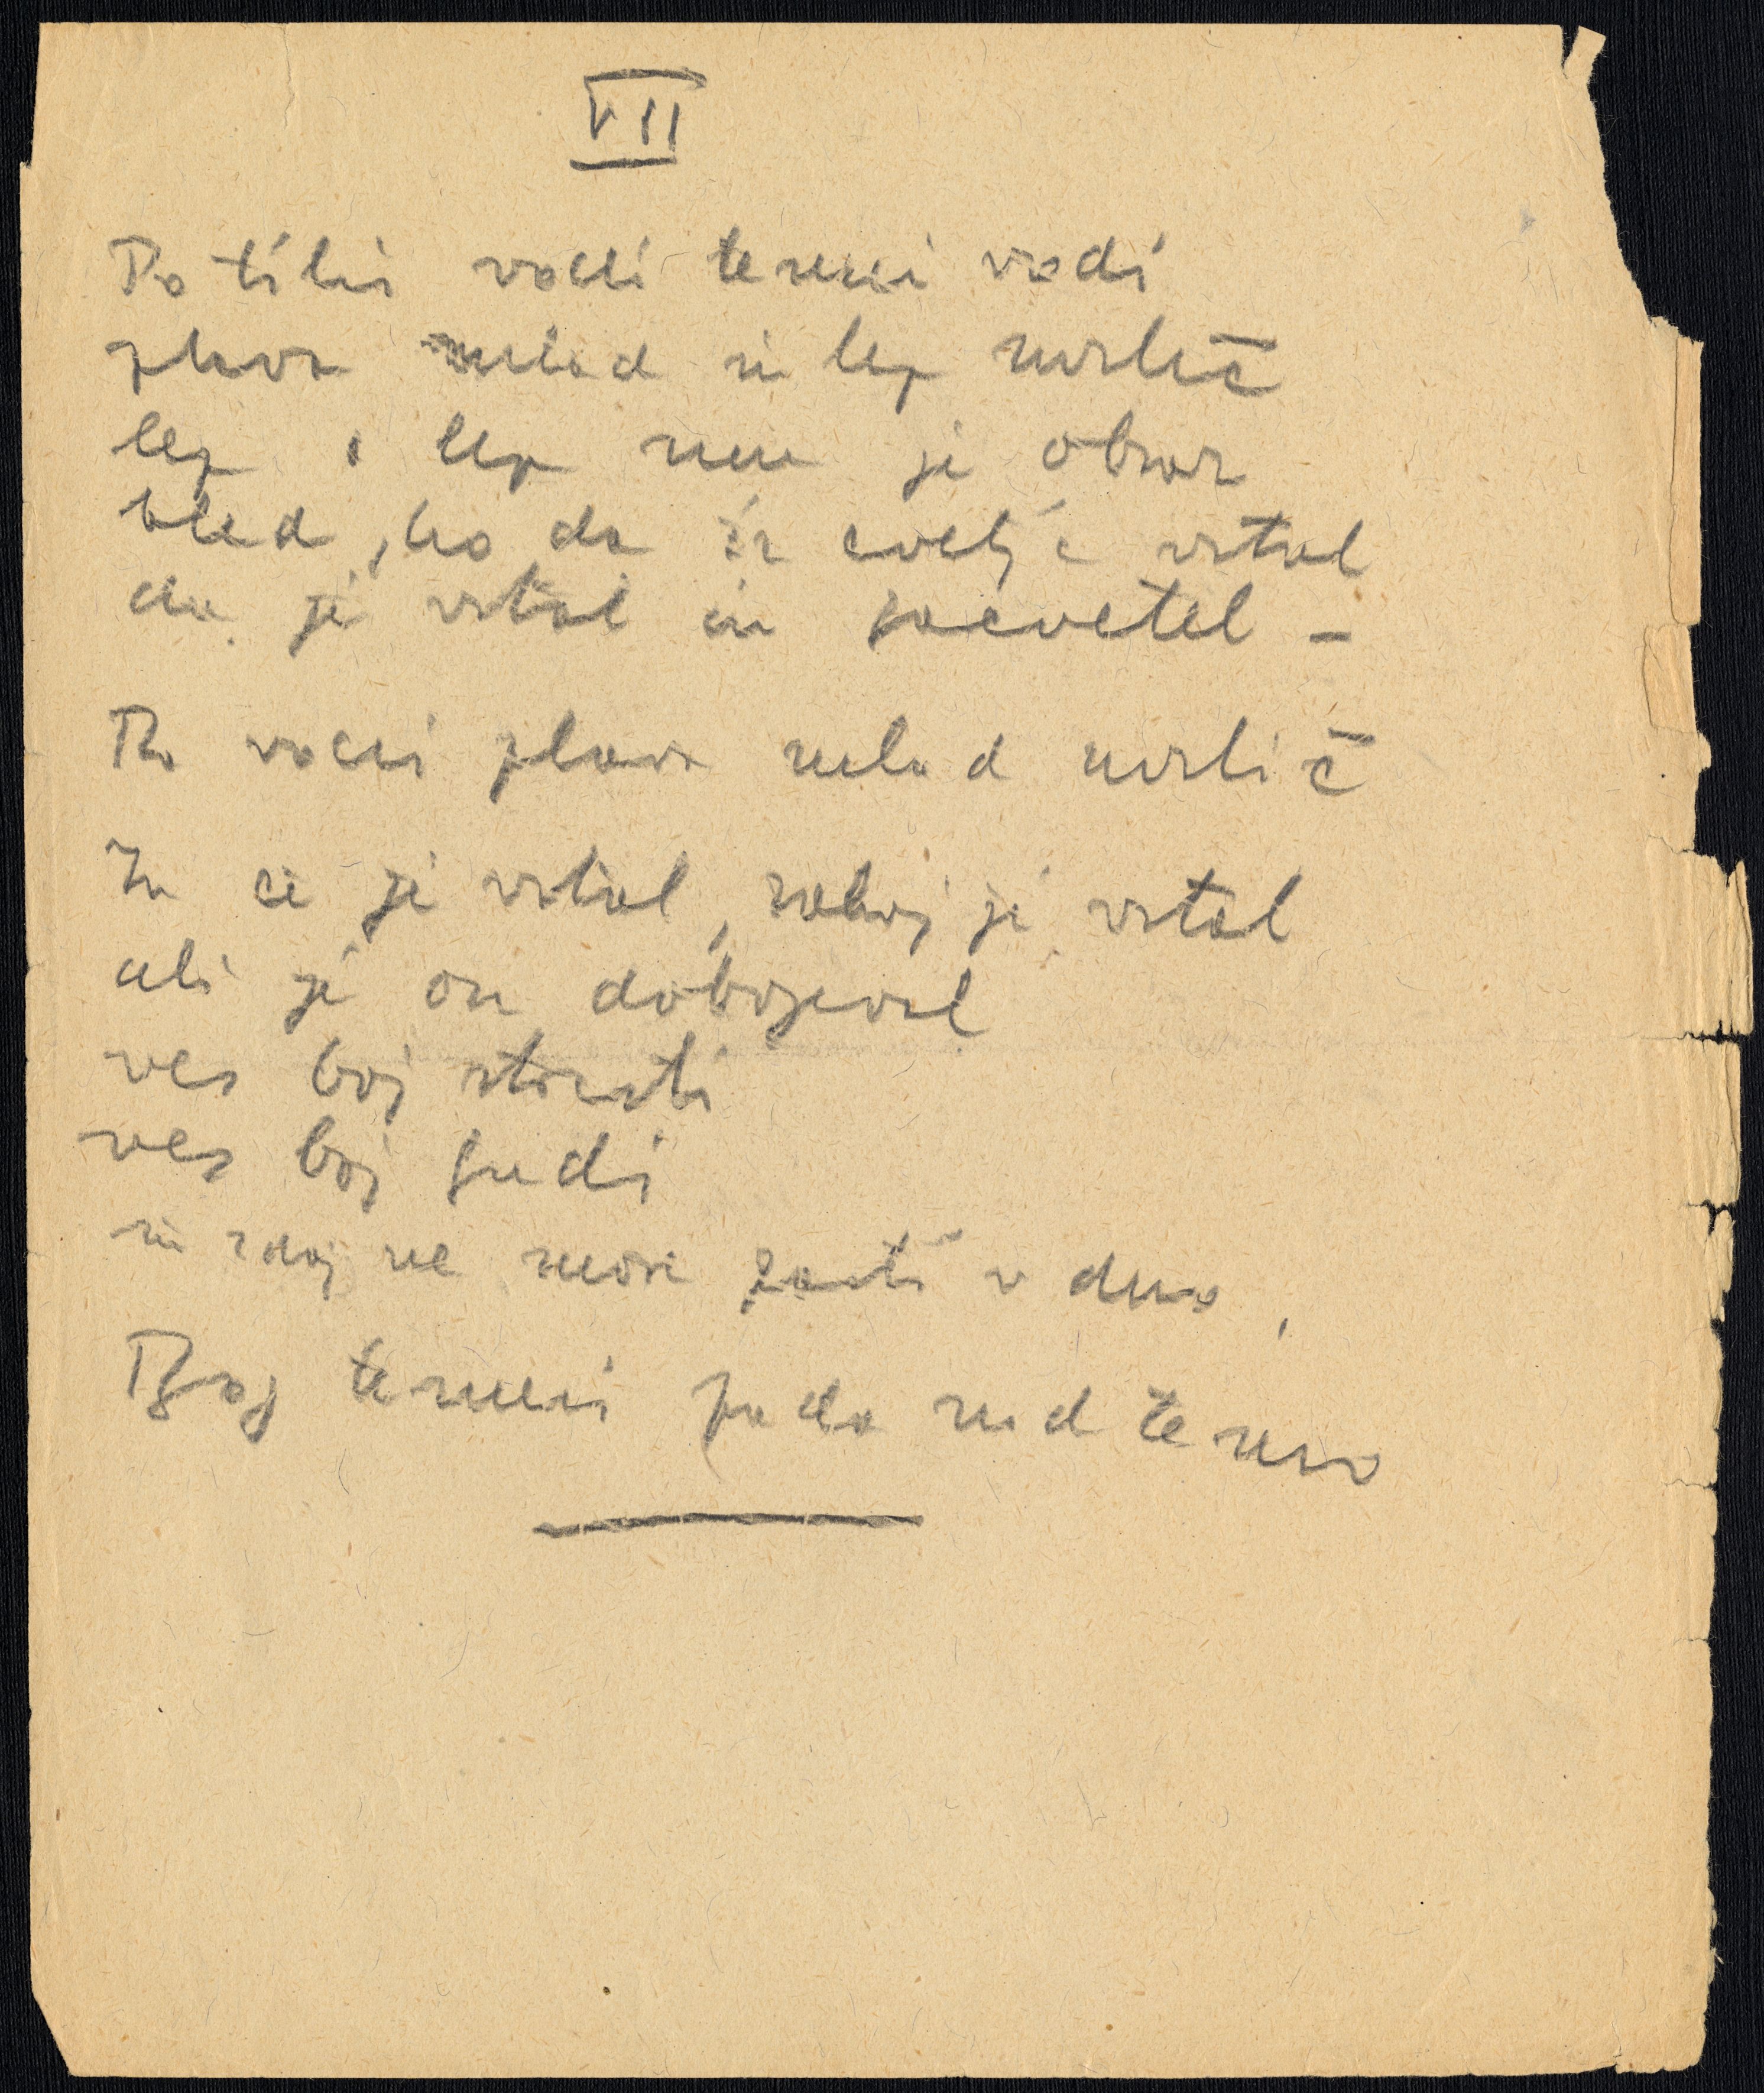 VII
Po tihi vodi temni vodi
plava mlad in lep mrlič
lep, lep mu je obraz
bled, ko da iz cvetja vstal
da je vstal in zacvetel –
Po vodi plava mlad mrlič
In če je vstal, zakaj je vstal
ali je on dobojeval
ves boj strasti
ves boj ljudi
in zdaj ne more pasti v dno,
Boj temni pada nad temno